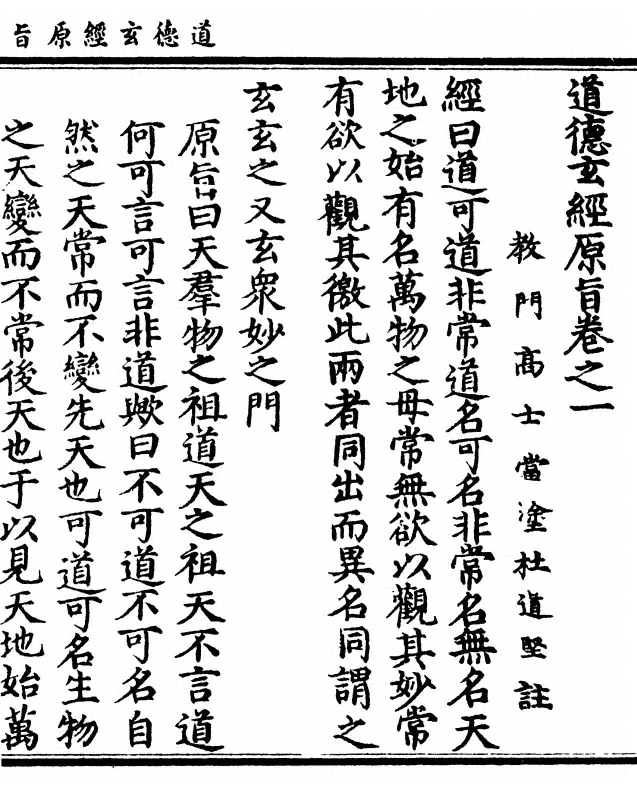 道德玄經原旨
道德玄經原旨卷之一
教門高士當塗杜道堅註
經曰道可道非常道名可名非常名無名天
地之始有名萬物之母常無欲以觀其妙常
有欲以觀其徼此兩者同出而異名同謂之
玄玄之又玄衆妙之門
原旨曰天羣物之祖道天之祖天不言道
何可言可言非道歟曰不可道不可名自
然之天常而不變先天也可道可名生物
之天變而不常後天也于以見天地始萬